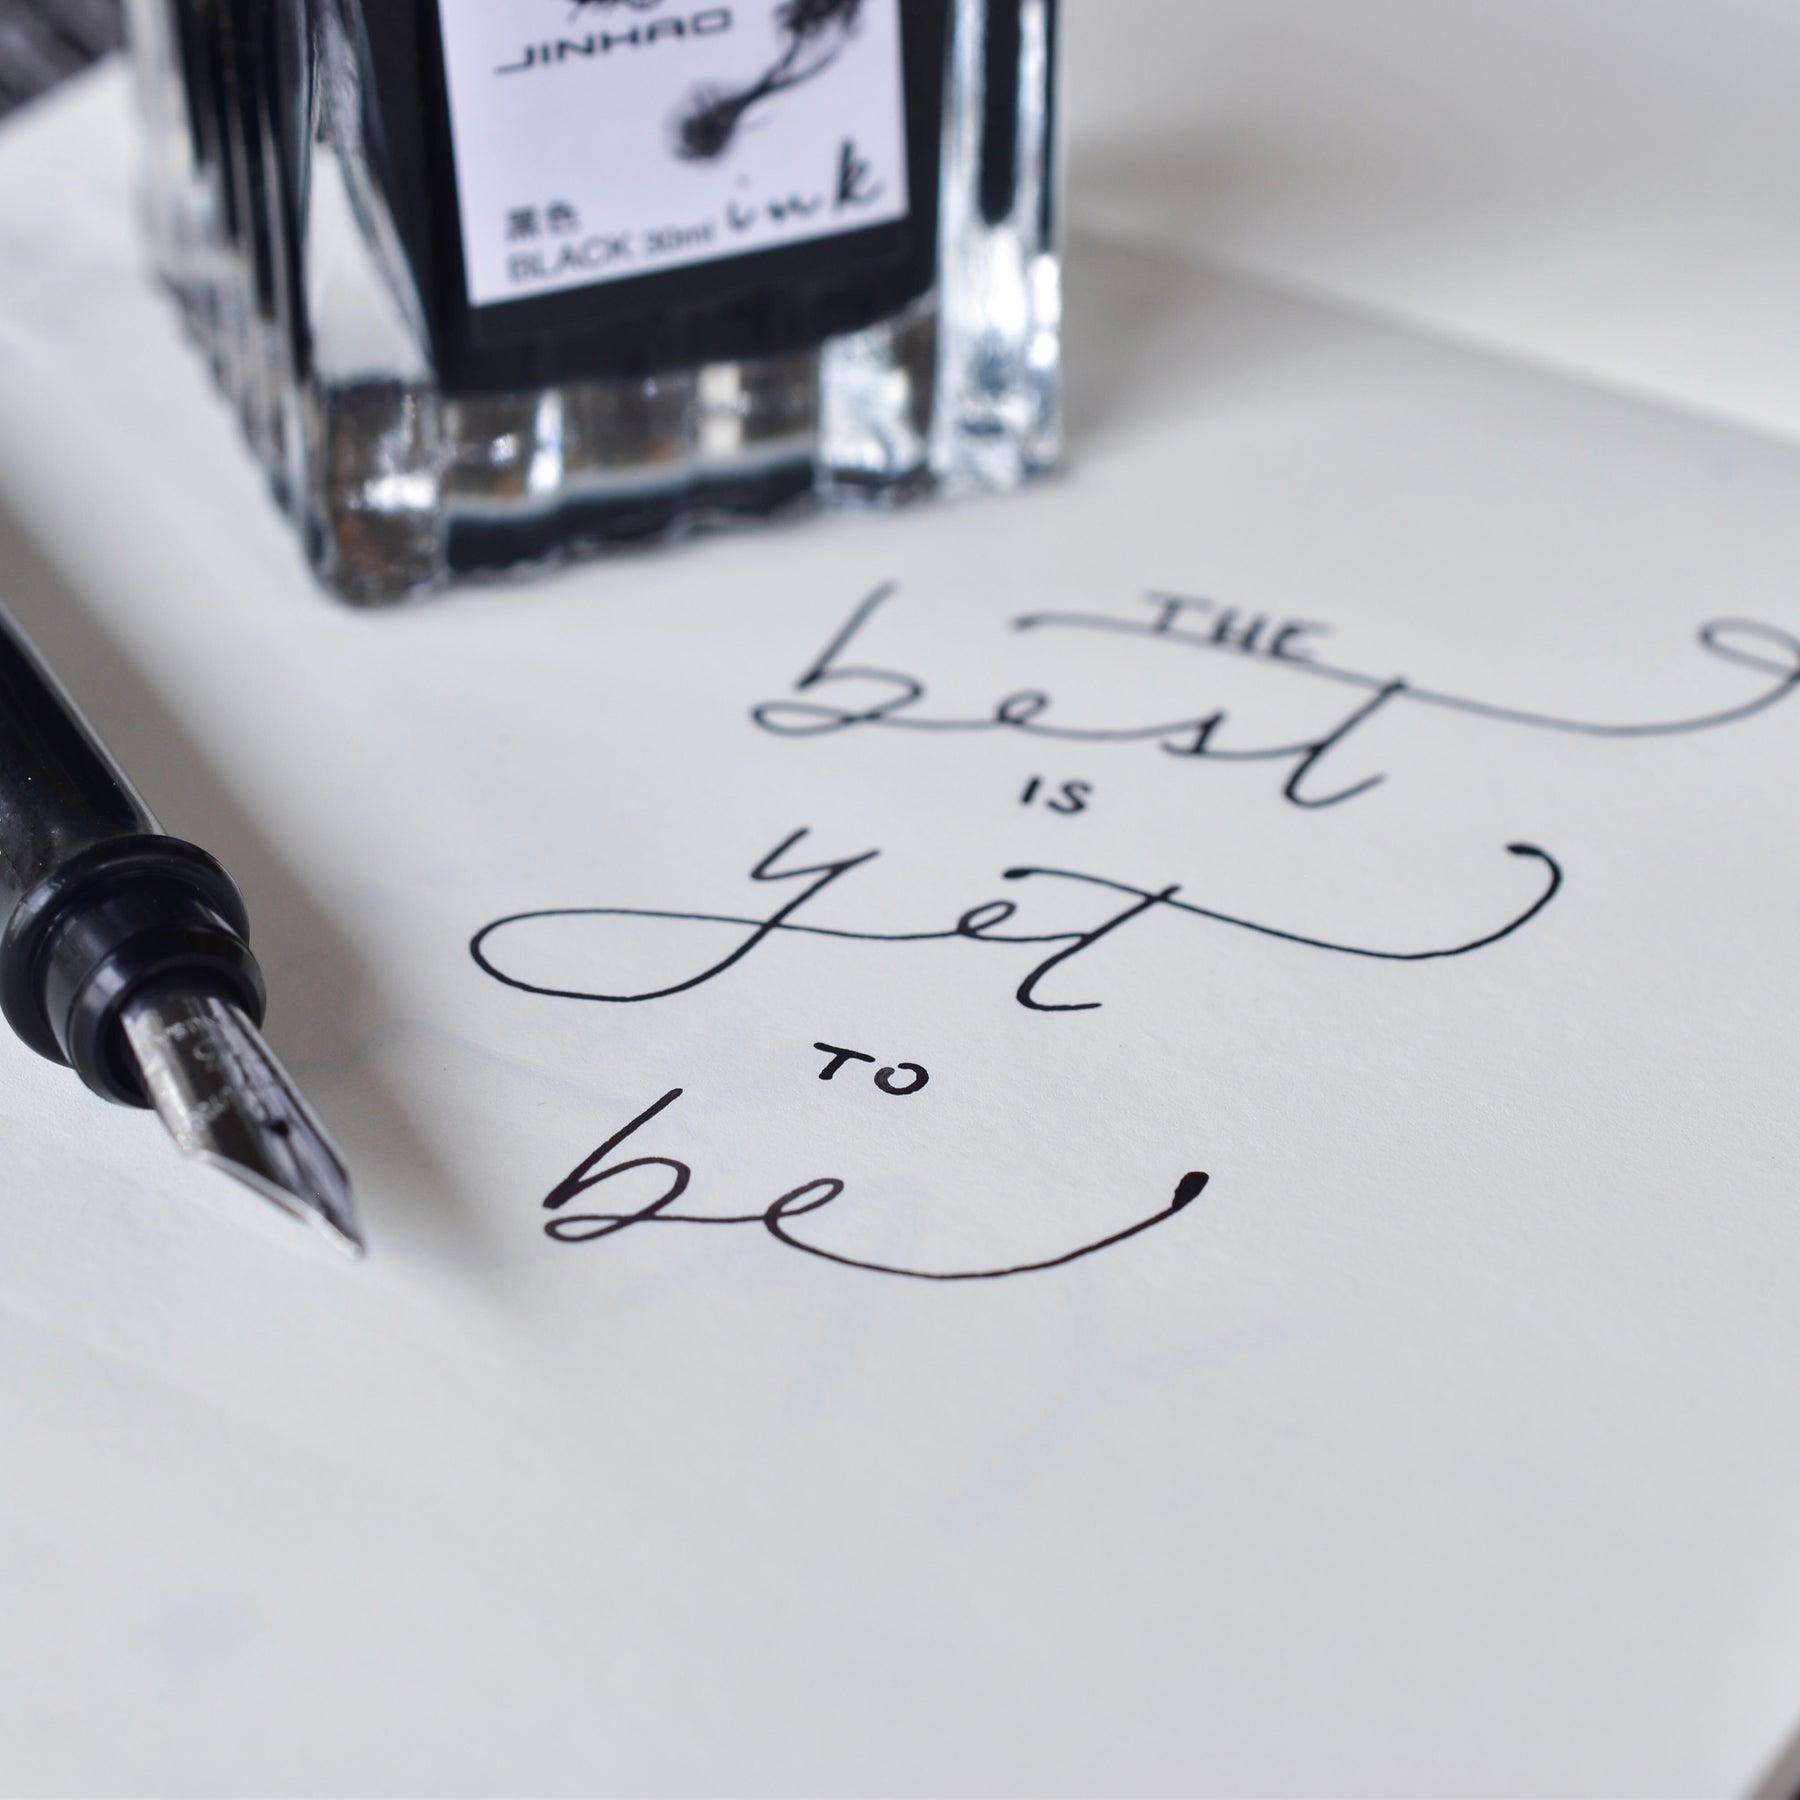 JINHAO
ink
黑色
BLACK 30ml
THE
best
IS
yet
TO
be